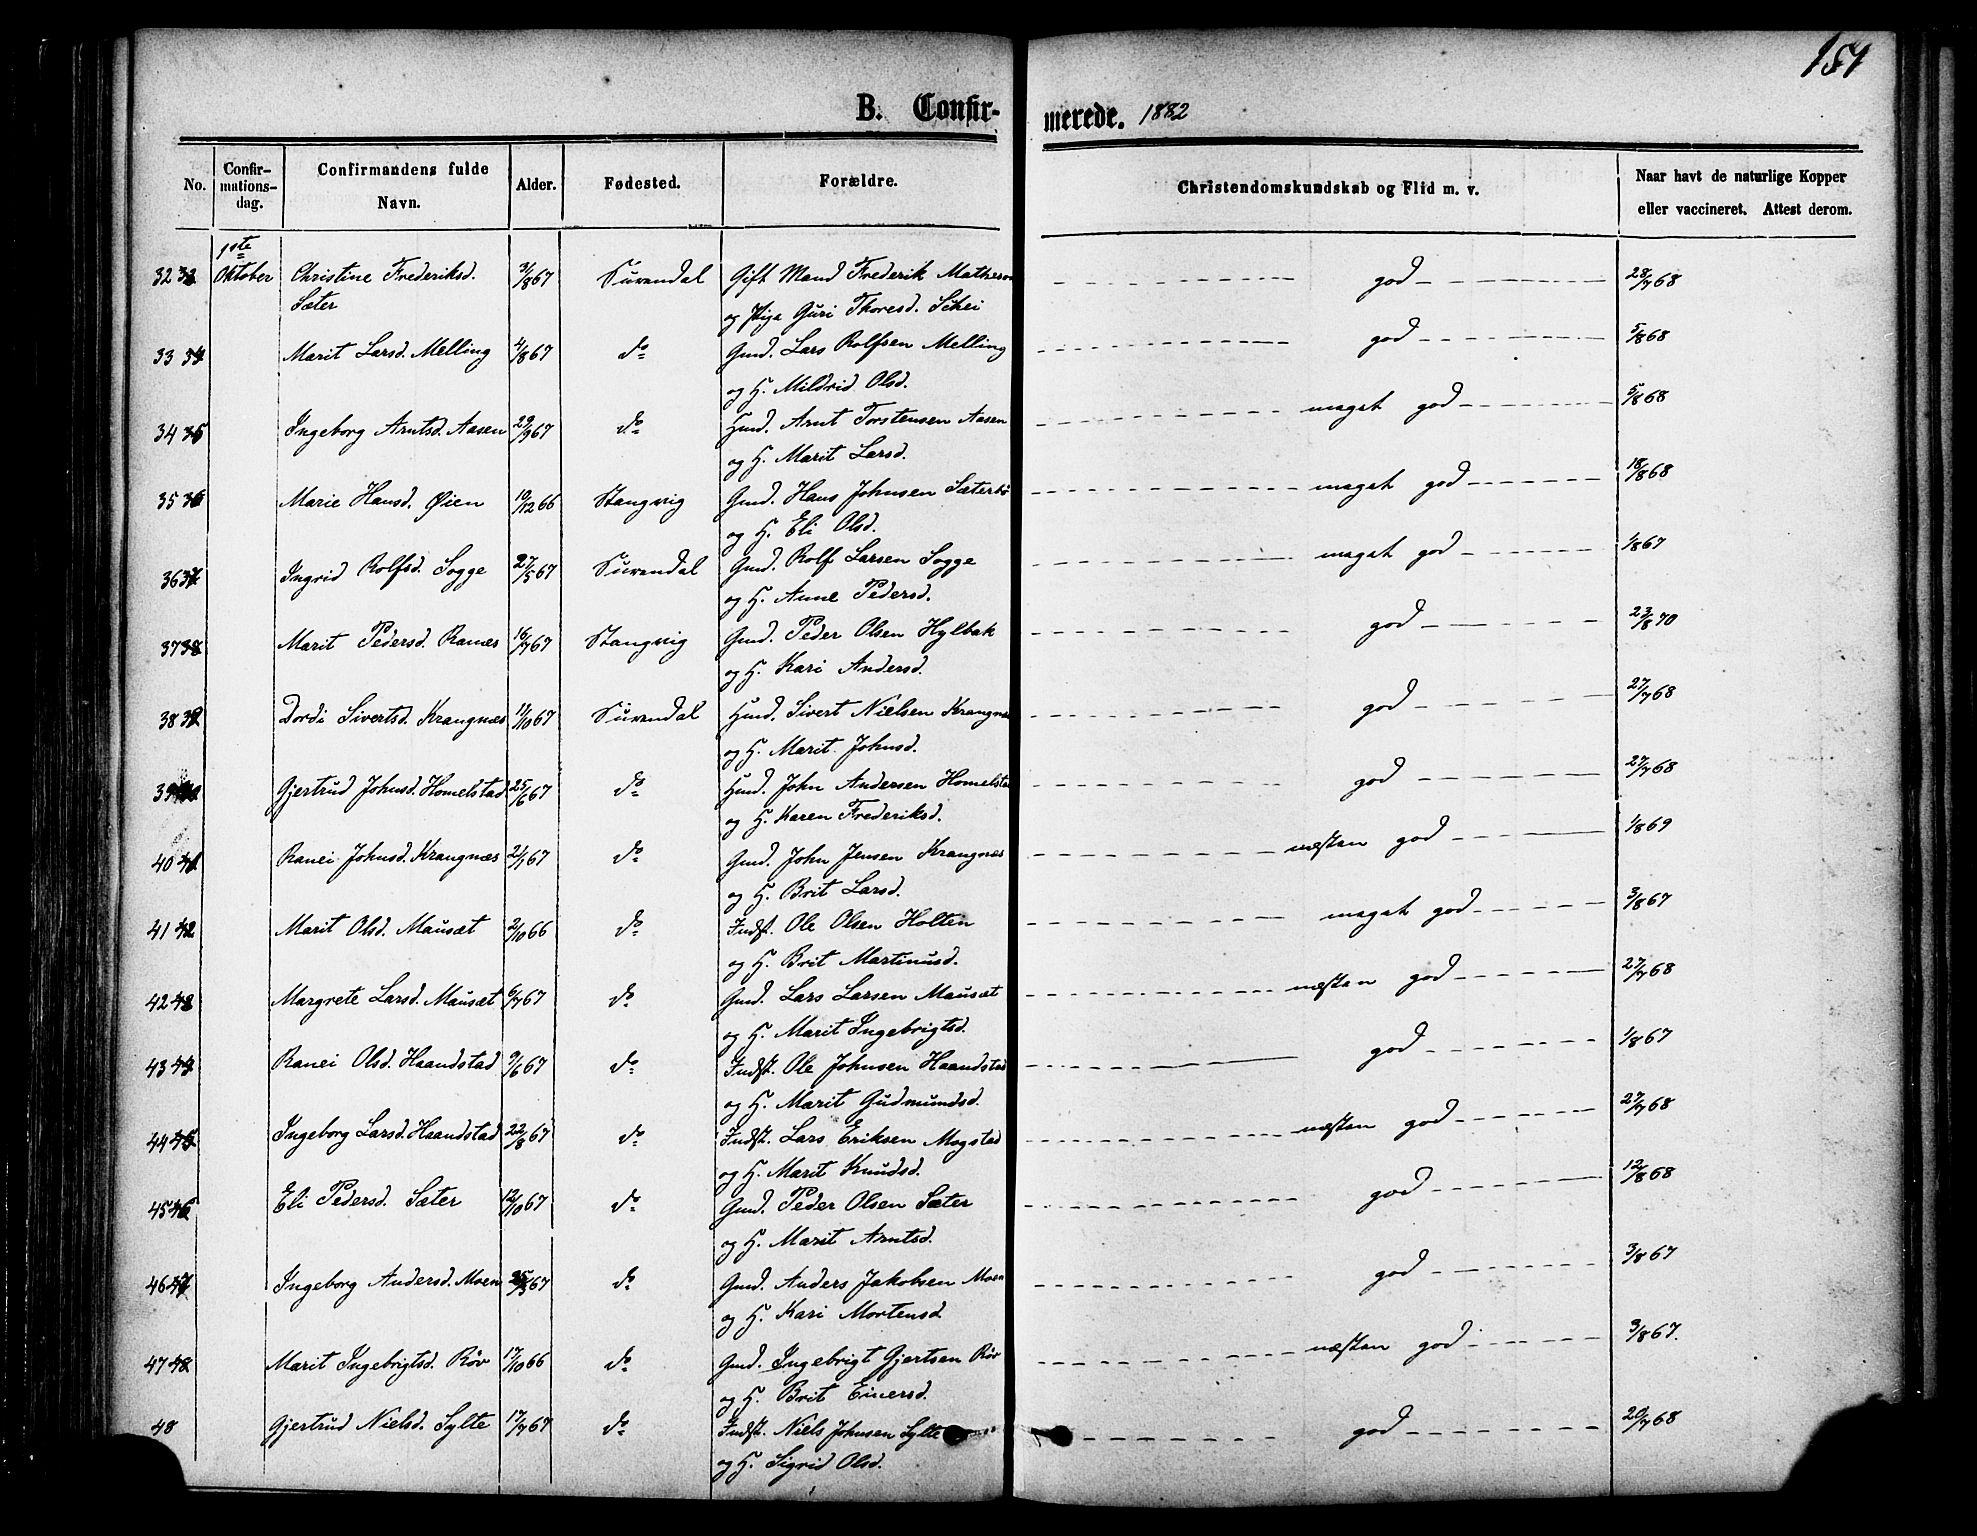 151
B. Confir- merede. 1882
No. Confir- mations- dag. Confirmandens fulde Navn. Alder. Fødested. Forældre. Christendomskundskab og Flid m. v. Naar havt de naturlige Kopper eller vaccineret. Attest derom.
1ste
32 33 Oktober Christine Frederiksd. 3/8 67 Surendal Gift Mand Frederik Mathesen god 28/7 68
Sæter og Piga Guri Thoresd. Schei
33 34 Marit Larsd. Melling 4/8 67 do Gmd. Lars Rolfsen Melling god 5/8 68
og H. Mildrid Olsd.
34 35 Ingeborg Arntsd. Aasen 29/9 67 do Hmd. Arnt Torstensen Aasen meget god 5/8 68
og H. Marit Larsd.
35 36 Marie Hansd. Øien 10/12 66 Stangvig Gmd. Hans Johnsen Sæterbø meget god 18/8 68
og H. Eli Olsd.
36 37 Ingrid Rolfsd. Sogge 27/5 67 Surendal Gmd. Rolf Larsen Sogge meget god 1/8 67
og H. Anne Pedersd.
37 38 Marit Pedersd. Ranes 16/7 67 Stangvig Gmd. Peder Olsen Hylbak god 23/8 70
og H. Kari Andersd.
38 39 Dordi Sivertsd. Krangnæs 11/10 67 Surendal Hmd. Sivert Nielsen Krangnæs god 27/7 68
og H. Marit Johnsd.
39 40 Gjertrud Johnsd. Homelstad 25/6 67 do Hmd. John Andersen Homelstad god 27/7 68
og H. Karen Frederiksd.
40 41 Ranei Johnsd. Krangnæs 2/1 67 do Gmd. John Jensen Krangnæs næsten god 1/8 69
og H. Brit Larsd.
41 42 Marit Olsd. Mausæt 2/10 66 do Indst. Ole Olsen Holten meget god 3/8 67
og H. Brit Martinusd.
42 43 Margrete Larsd. Mausæt 6/7 67 do Gmd. Lars Larsen Mausæt næsten god 27/7 68
og H. Marit Ingebrigtsd.
43 44 Ranei Olsd. Haandstad 9/6 67 do Indst. Ole Johnsen Haandstad god 1/8 67
og H. Marit Gudmundsd.
44 45 Ingeborg Larsd. Haandstad 22/8 67 do Indst. Lars Eriksen Mogstad næsten god 27/7 68
og H. Marit Knudsd.
45 46 Eli Pedersd. Sæter 12/10 67 do Gmd. Peder Olsen Sæter god 12/8 68
og H. Marit Arntsd.
46 47 Ingeborg Andersd. Moen 67 do Gmd. Anders Jakobsen Moen god 3/8 67
og H. Kari Mortensd.
47 48 Marit Ingebrigtsd. Røv 17/10 66 do Gmd. Ingebrigt Gjertsen Røv næsten god 3/8 67.
og H. Brit Einersd.
48 Gjertrud Nielsd. Sylte 17/7 67 do Indst. Niels Johnsen Sylte god 20/7 68
og H. Sigrid Olsd.